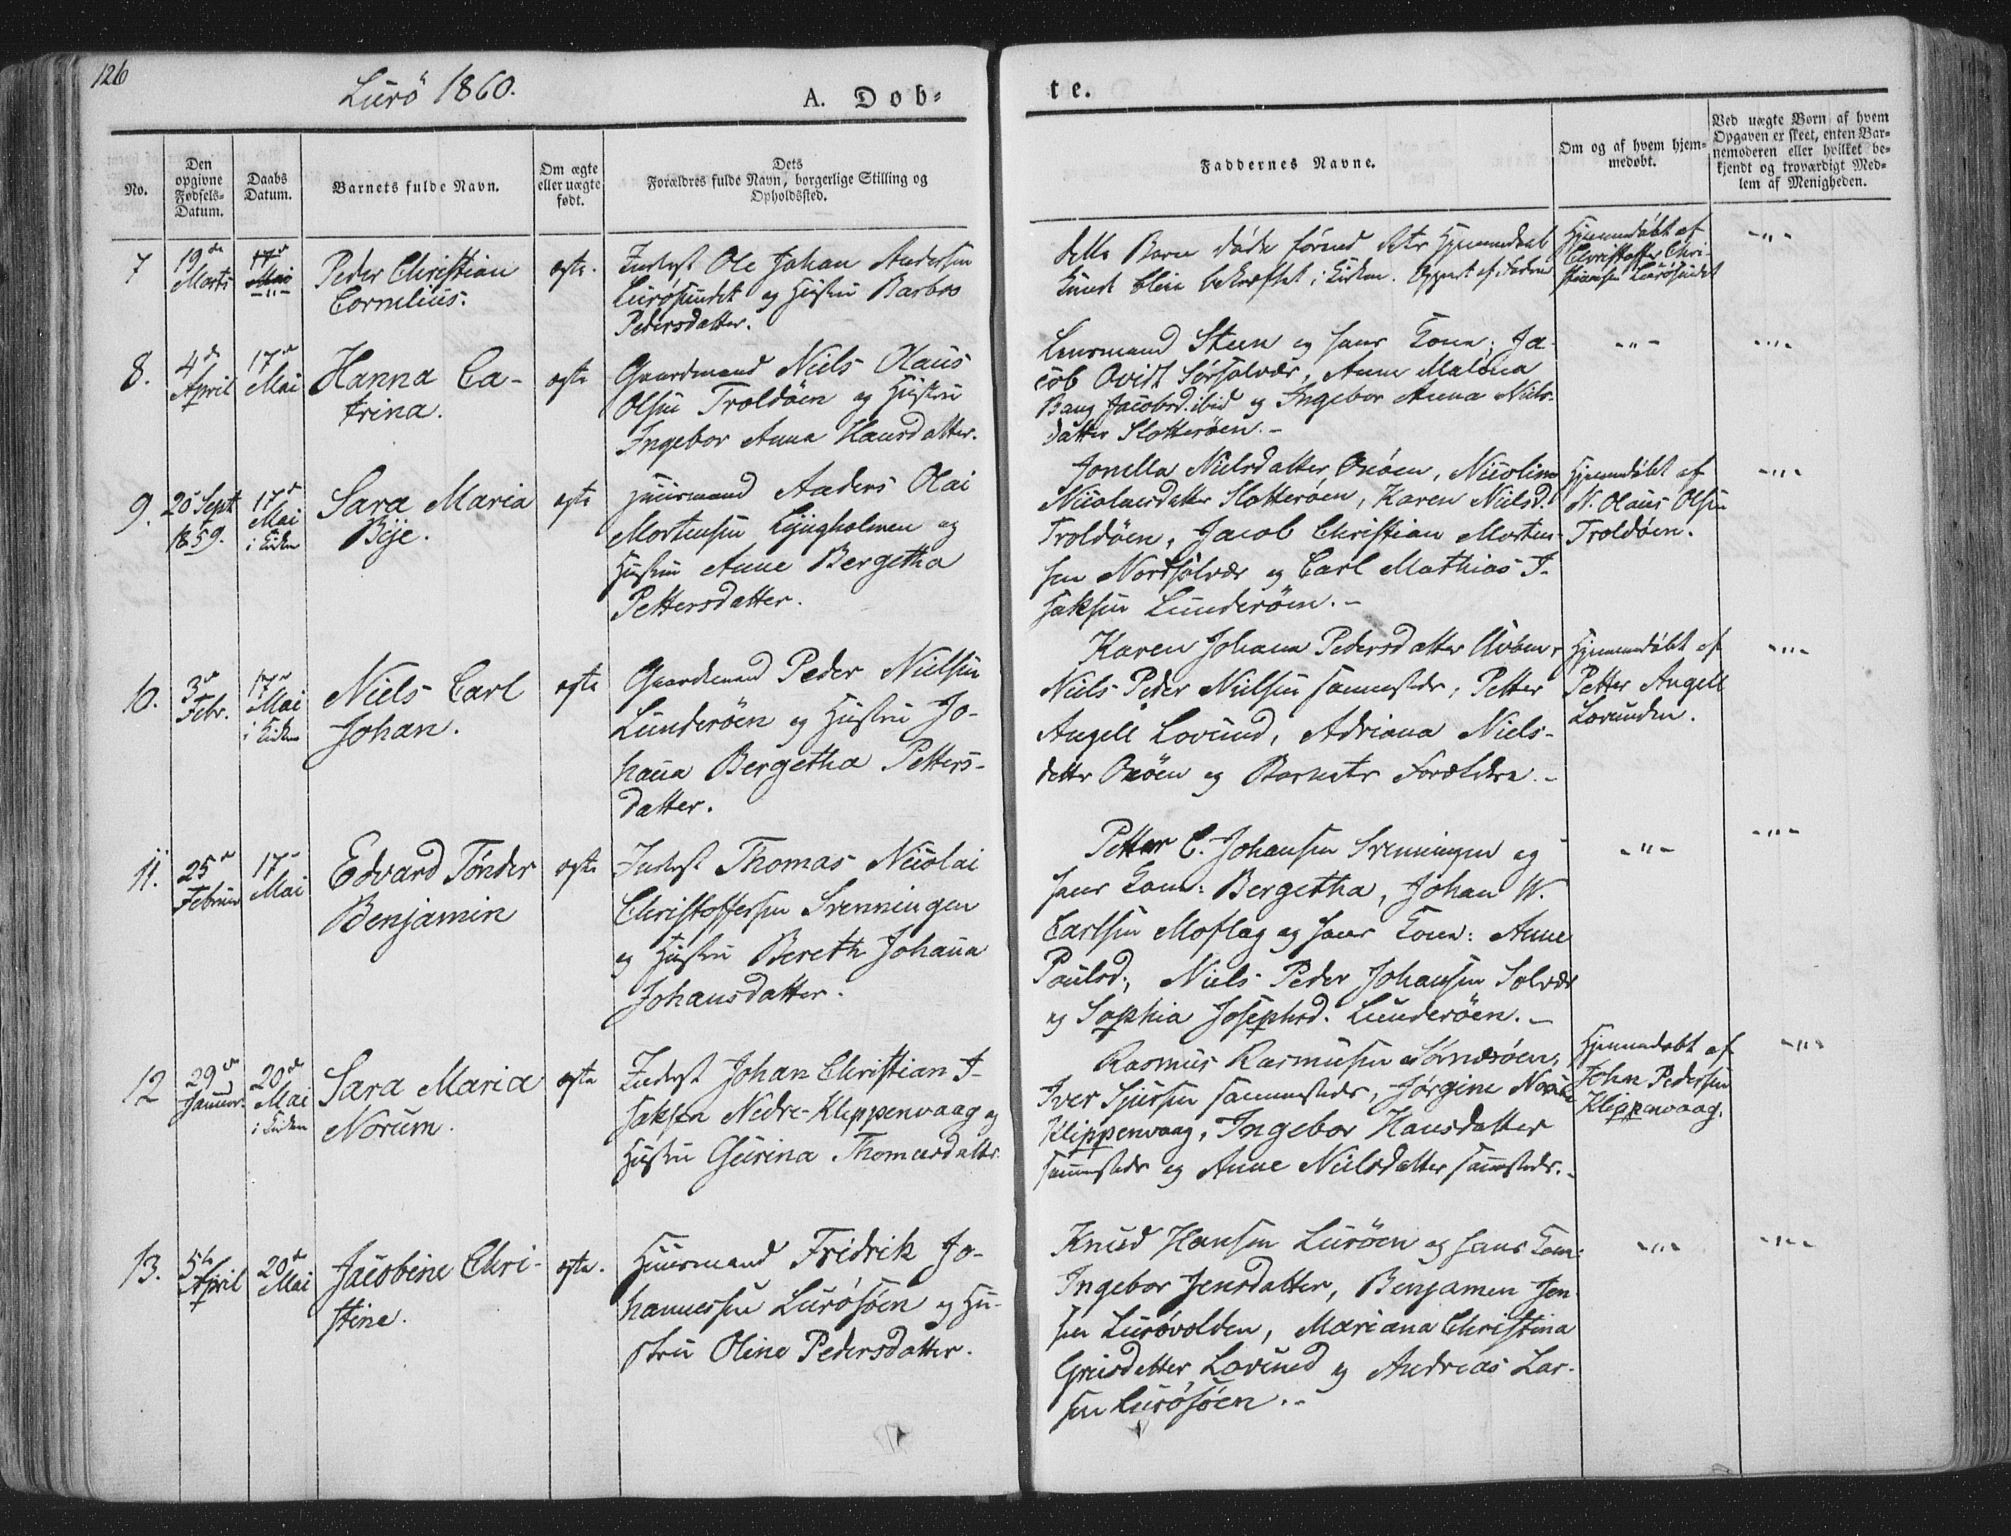 126
Lurö 1860.
A. Dob-
te.
No.
Den opgivne Fødsels-Datum.
Daabs Datum.
Barnets fulde Navn.
Om ægte eller uægte født.
Dets Forældres fulde Navn, borgerlige Stilling og Opholdssted.
Faddernes Navne.
Om og af hvem hjemmedøbt.
Ved uægte Børn af hvem Opgaven er skeet, enten Barnemoderen eller hvilket bekjendt og troværdigt Medlem af Menigheden.
7
19de Marts
17d Mai
-"-
Peder Christian
Cornelius.
ægte.
Inderst Ole Johan Andersen
Lurösundet og Hustru Barbro
Pedersdatter.
dette Barn døde förend dets Hjemmedaab
kunde blive bekræftet i Kirken.
Hjemmedöbt af
Christoffer Chri-
stiansen Lurösundet
-"-
8.
4d April
17d Mai
Hanna Ca-
trina.
ægte
Gaardmand Niels Olaus
Olsen Troldöen og Hustru
Ingebor Anna Hansdatter.
Lensmand Steen og hans Kone, Ja-
cob Qvist Sörsolvær, Anne Malena
Bang Jacobsd. ibid og Ingebor Anna Niels-
datter Slotteröen. -
-"-
-"-
9.
20 Sept 1859.
17d Mai i Kirken
Sara Maria
Bye.
ægte
Huusmand Anders Olai
Mortensen Lyngholmen og
Hustru Anne Bergetha
Pettersdatter.
Jonella Nielsdatter Oxöen, Nicoline
Nicolaisdatter Slotteröen, Karen Nielsd.
Troldöen, Jacob Christian Morten-
sen Nordsolvær og Carl Mathias I-
saksen Lunderöen. -
Hjemmedöbt af
N. Olaus Olsen
Troldöen.
-"-
10.
3d Febr.
17d Mai i Kirken
Niels Carl
Johan.
ægte
Gaardmand Peder Nielsen
Lunderöen og Hustru Jo-
hana Bergetha Petters-
datter.
Karen Johana Pedersdatter
Niels Peder Nielsen sammesteds, Petter
Angell Lovund, Adriana Niels-
datter Oxöen og Barnets Forældre. -
Hjemmedöbt af
Petter Angell
Lovunden.
-"-
11.
25d Februar
17d Mai
Edvard Tönder
Benjamin
ægte
Inderst Thomas Nicolai
Christoffersen Svenningen
og Hustru Bereth Johana
Johansdatter.
Petter C. Johansen Svenningen og
hans Kone: Bergetha, Johan W.
Carlsen Moflag og hans Kone: Anne
Paulsd., Niels Peder Johansen Solvær
og Sophia Josephsd. Lunderöen. -
-"-
-"-
12
29d Januar.
20d Mai i Kirken
Sara Maria
Norum.
ægte
Inderst Johan Christian I-
saksen Nedre-Klippenvaag og
Hustru Geirina Thomasdatter.
Rasmus Rasmusen Sörnesöen,
Iver Sjursen sammesteds, Jörgine
Klippenvaag, Ingebor Hansdatter
sammesteds og Anne Nielsdatter sammesteds. -
Hjemmedöbt af
John Pedersen
Klippenvaag.
-"-
13.
5te April
20d Mai
Jacobine Chri-
stine.
ægte.
Huusmand Fridrik Jo-
hannessen Lurösöen og Hu-
stru Oline Pedersdatter.
Knud Hansen Luröen og hans Kone
Ingebor Jensdatter, Benjamen Jen
sen Luróvolden, Mariana Christina
Greisdatter Lovund og Andreas Lar-
sen Lurösöen. -
-"-
-"-